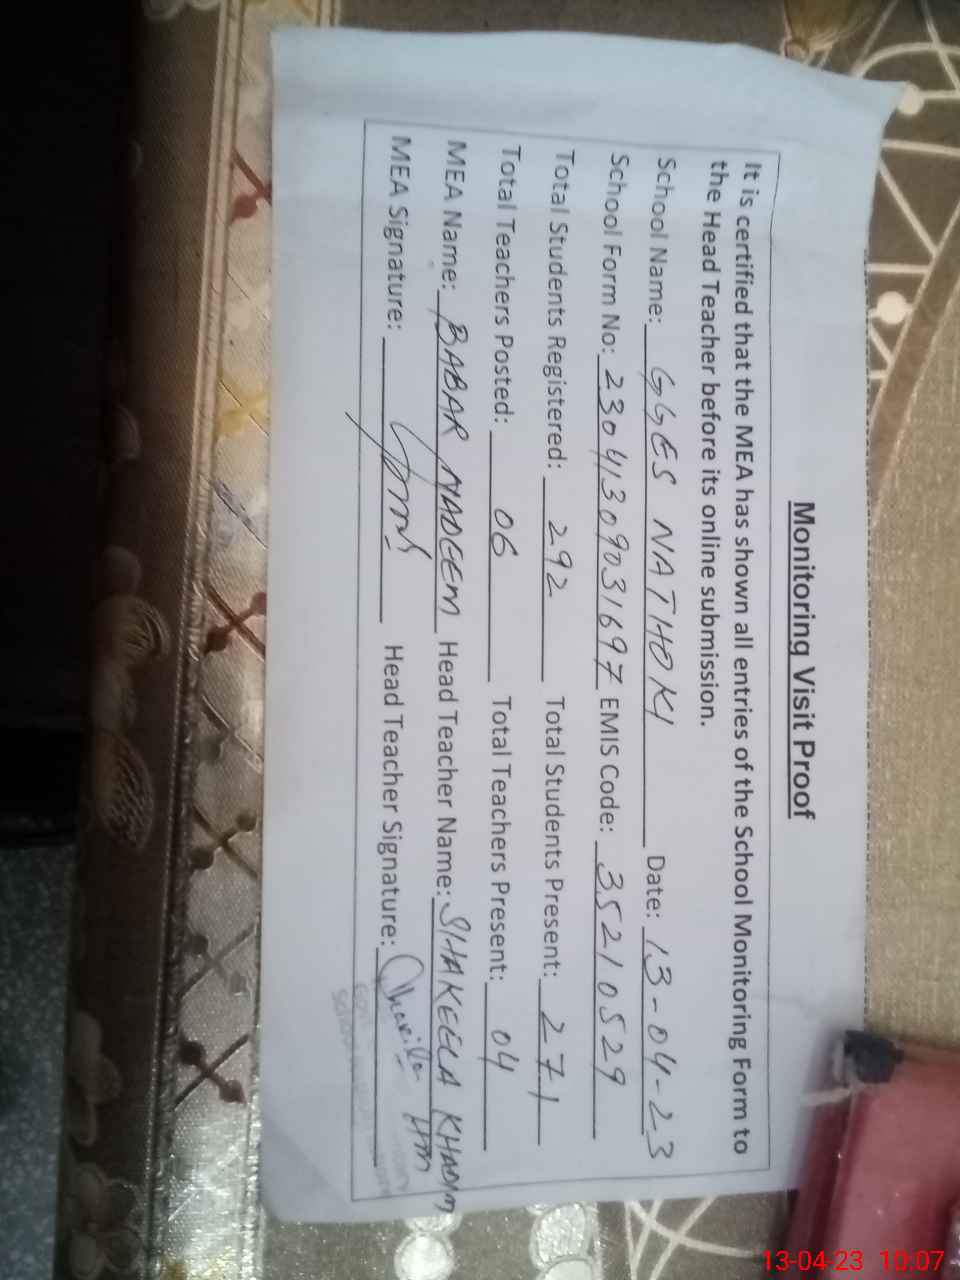 Monitoring Visit Proof
It is certified that the MEA has shown all entries of the School Monitoring Form to
the Head Teacher before its online submission.
School Name: GGES NATHOKI Date: 13-04-23
School Form No: 23041309031697 EMIS Code: 35210529
Total Students Registered: 292 Total Students Present: 271
Total Teachers Posted: 06 Total Teachers Present: 04
MEA Name: BABAR NADEEM Head Teacher Name: SHAKEELA KHADIM
MEA Signature: Head Teacher Signature: HM
13-04-23 10:07